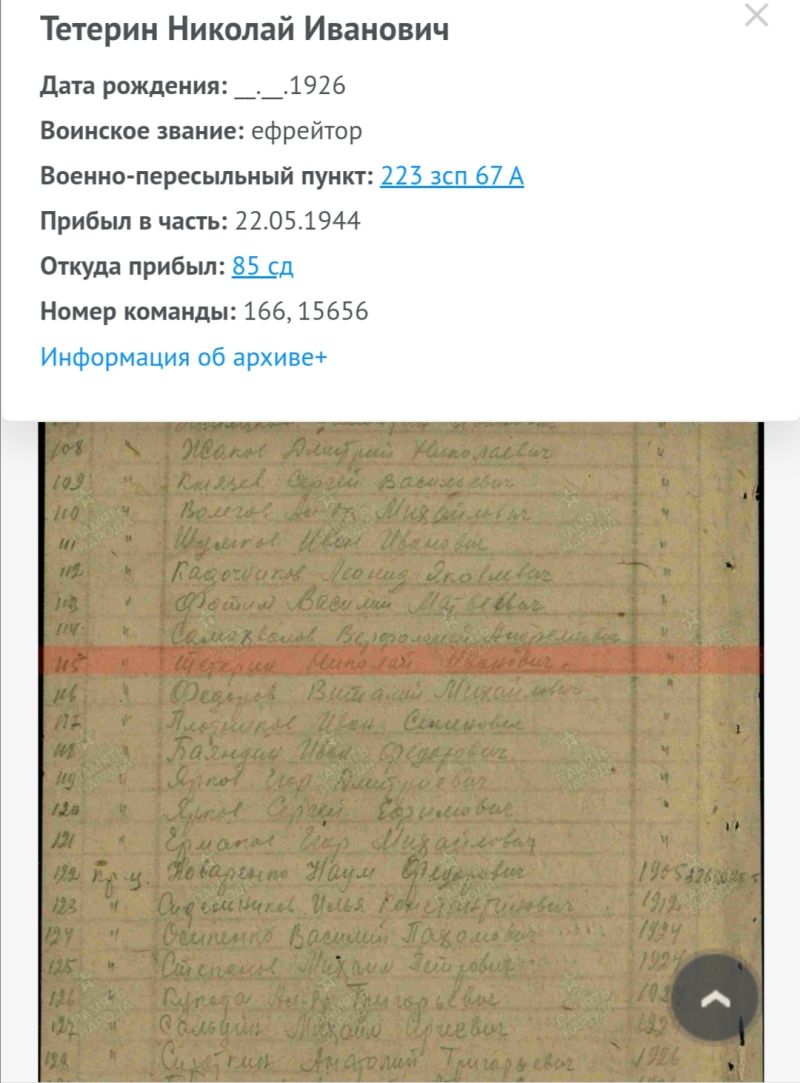 Тетерин Николай Иванович
Дата рождения: __.__.1926
Воинское звание: ефрейтор
Военно-пересыльный пункт: 223 зсп 67 А
Прибыл в часть: 22.05.1944
Откуда прибыл: 85 сд
Номер команды: 166, 15656
Информация об архиве+
108 " Жаков Дмитрий Николаевич "
109 " Князев Сергей Васильевич "
110 " Волегов Ал-др Михайлович "
111 " Шумков Иван Иванович "
112 " Кадочников Леонид Яковлевич "
113 " Фотин Василий Матвеевич "
114 " Самохвалов Андреевич "
115 " Тетерин Николай Иванович "
116 " Федоров Виталий Михайлович "
117 " Плотников Иван Семенович "
118 " Баяндин Иван Федорович "
119 " Ярков Егор Дмитриевич "
120 " Ярков Сергей Ефимович "
121 " Ермаков Егор Михайлович "
122 кр-ц. Наум Федорович 1905
123 " Сидельников Илья Константинович 1912
124 " Осипенко Василий Пахомович 1924
125 " Степанов Михаил Петрович 1924
126 " Ал-др Григорьевич
127 " Михаил
128 " Сироткин Анатолий Григорьевич 1926